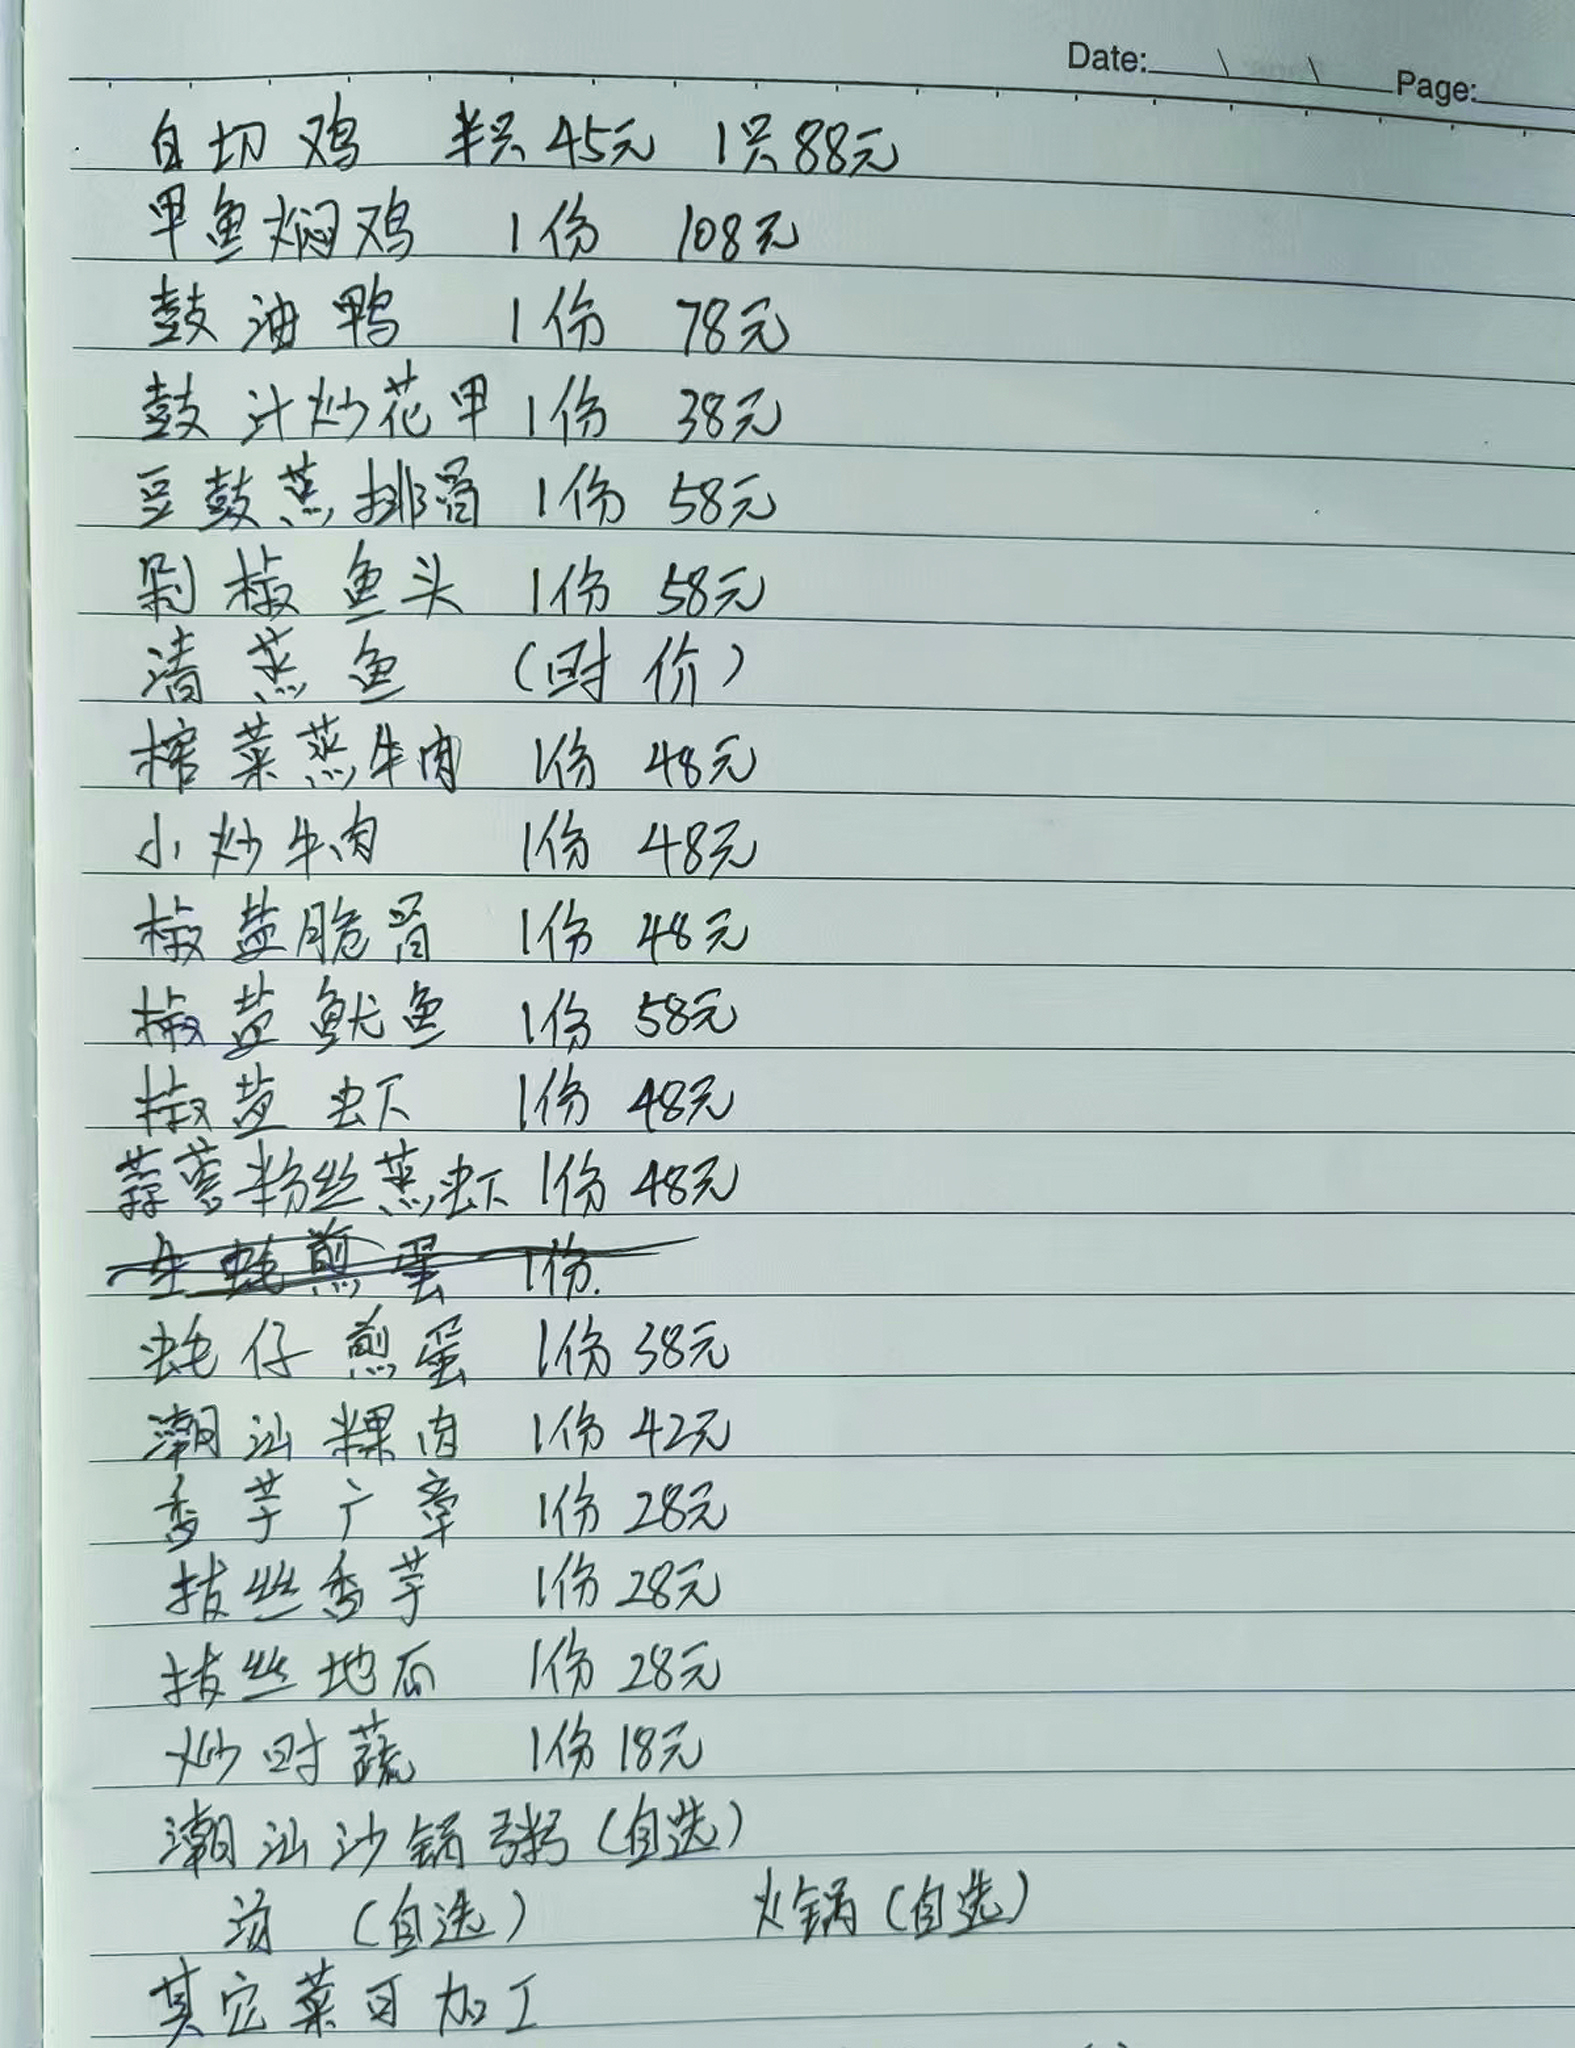 Date: \ \ Page:
白切鸡 半只45元 1只88元
甲鱼焖鸡 1份 108元
鼓油鸭 1份 78元
鼓汁炒花甲 1份 38元
豆鼓蒸排骨 1份 58元
剁椒鱼头 1份 58元
清蒸鱼 (时价)
榨菜蒸牛肉 1份 48元
小炒牛肉 1份 48元
椒盐脆骨 1份 48元
椒盐鱿鱼 1份 58元
椒盐虾 1份 48元
蒜蓉粉丝蒸虾 1份 48元
生蚝煎蛋 1份.
蚝仔煎蛋 1份 38元
潮汕粿肉 1份 42元
香芋广章 1份 28元
拔丝香芋 1份 28元
拔丝地瓜 1份 28元
炒时蔬 1份 18元
潮汕沙锅粥(自选)
汤 (自选) 火锅(自选)
其它菜可加工